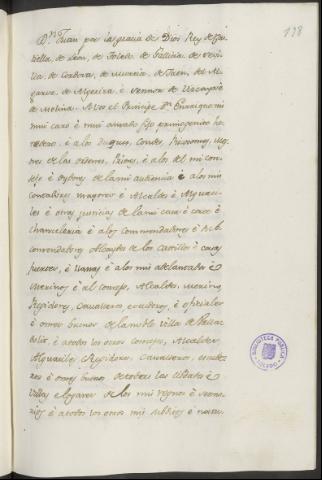 Dn. Juan por la gracia de Dios Rey de Cas
tiella, de Leon, de Toledo de Gallicia de Sevi
lla, de Cordova, de Murcia, de Jaen, del Al
garve, de Algecira, è Sennor de Vizcaya è
de Molina. A vos el Principe Dn. Enrrique mi
mui caro è mui amado fijo primogenito he
redero, è a los Duques, Condes, Ricosomes, Mae
tres de las ordenes, Priores, è a los del mi conse
jo è oydores de la mi audiencia è a los mis
contadores mayores è Alcaldes è Alguaci
les è otras justicias de la mi casa è corte è
Chancelleria è a los commendadores è Sub
commendadores Alcaydes de los Castillos è casas
fuertes, è llanas è a los mis adelantados è
Merinos è al concejo, Alcaldes, Merino
Regidores, Cavalleros escuderos, è oficiales
è omes buenos de la noble villa de
è a todos los otros Concejos, Alcaldes
Alguaciles Regidores, Cavalleros, escude
ros è omes buenos de todas las cibdades è
Villas è logares de los mis regnos è senno
rios è a todos los otros mis subditos è natu
138
BIBLIOTECA PUBLICA
TOLEDO